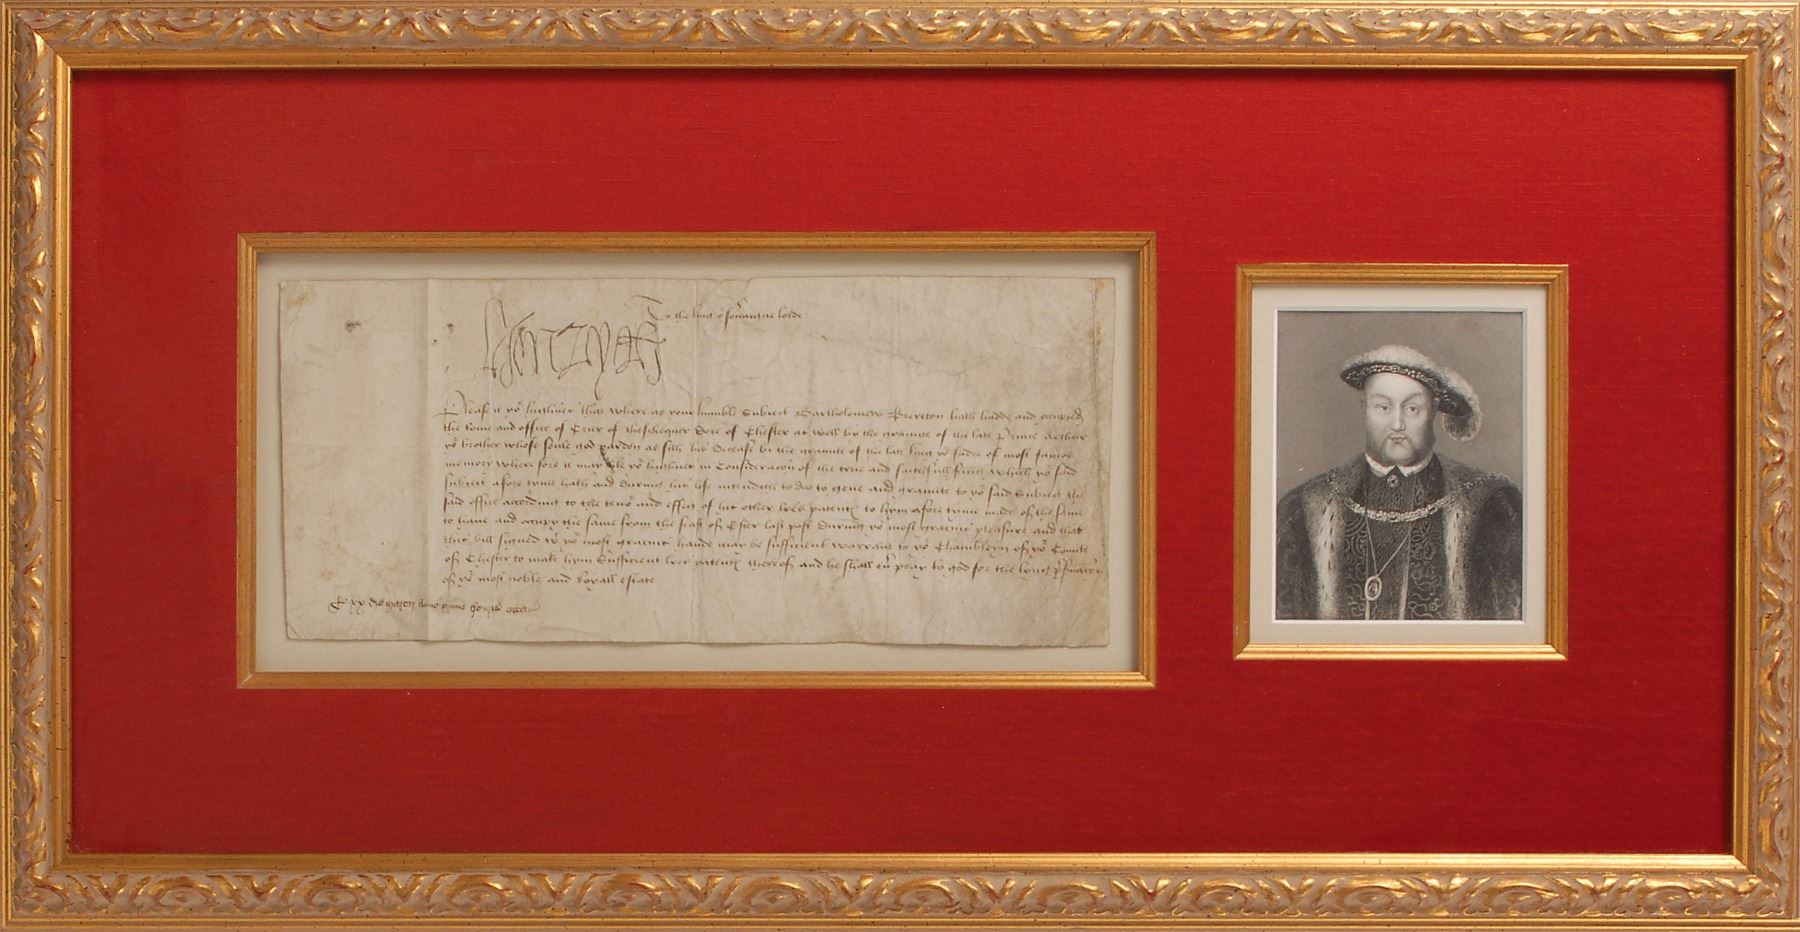 To the king oʳ soṽaigne lorde
Henry R
Please it yoʳ highnes that where as your humble Subiect Bartholomew Brereton hath hadde and occupied
the Rome and office of Crier of theschequer dore of Chester as well by the graunte of the late Prince Arthur
yoʳ brother whose soule god pardon as sith his decease by the graunte of the late king yoʳ fadre of most famos
memory where fore it may like yoʳ highnes in Consideracon of the true and faithfull which yoʳ said
subiect afore tyme hath and during his life intendith to do to geve and graunte to yoʳ said Subiect the
said office according to the tenoʳ and effect of his other lres patent to hym afore tyme made of the same
to have and occupy the same from the feast of Ester last past during yoʳ most gracious pleasure and that
this bill signed wᵗ yoʳ most gracious hande may be sufficient warrant to yoʳ Chamberleyn of yoʳ Countie
of Chester to make hym Sufficient lres patent thereof and he shall eũ pray to god for the long
of yoʳ most noble and Royall estate
xx anno